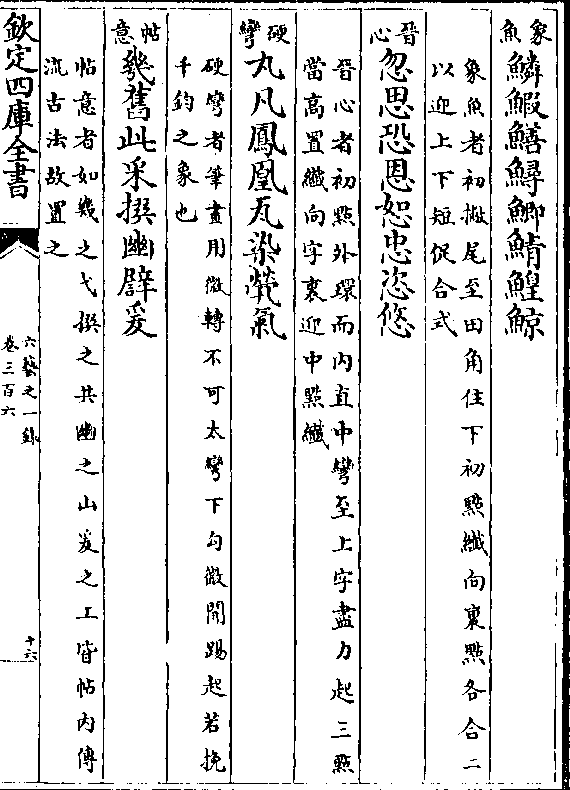 象魚
鱗鰕鱔鱘鯽鯖鰉鯨
象魚者初撇尾至田角住下初㸃纖向裏㸃各合二
以迎上下短促合式
晉心
忽思恐恩恕忠恣悠
晉心者初㸃外環而内直中彎至上字盡力起三㸃
當髙置纖向字裏迎中㸃纖
硬彎
丸凡鳳凰瓦染㷀氣
硬彎者筆畫用微轉不可太彎下勾微開踢起若挽
千鈞之象也
帖意
幾舊此采撰幽辟爰
帖意者如幾之弋撰之共幽之山爰之工皆帖内傳
流古法故置之
欽定四庫全書
六藝之一録
卷三百六
十六